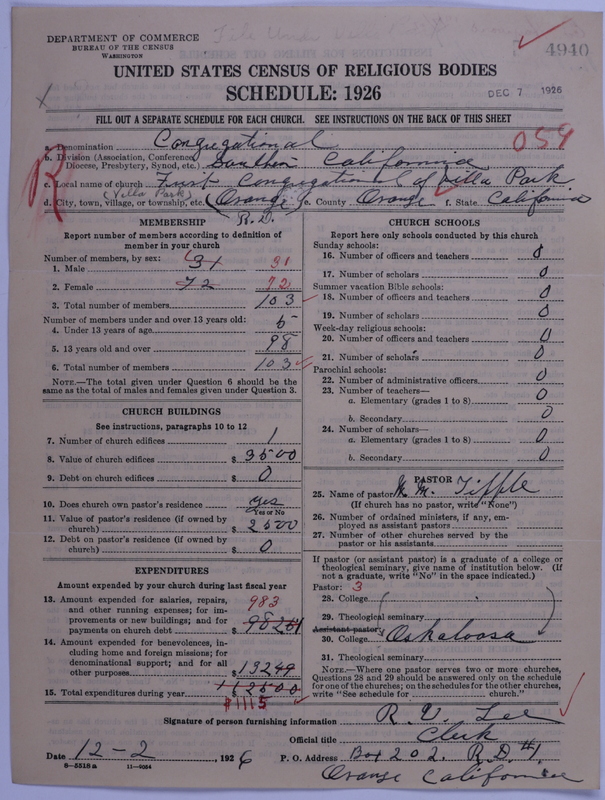 DEPARTMENT OF COMMERCE
BUREAU OF THE CENSUS
WASHINGTON
4940
UNITED STATES CENSUS OF RELIGIOUS BODIES
SCHEDULE: 1926
DEC 7 1926
FILL OUT A SEPARATE SCHEDULE FOR EACH CHURCH. SEE INSTRUCTIONS ON THE BACK OF THIS SHEET
059
a. Denomination Congregational
b. Division (Association, Conference, Diocese, Presbytery, Synod, etc.) Southern California
c. Local name of church First Congregational of Villa Park
(Villa Park)
d. City, town, village, or township, etc. (Orange) e. County Orange f. State California
R.D.
MEMBERSHIP
Report number of members according to definition of member in your church
Number of members, by sex:
1. Male 31 31
2. Female 72 72
3. Total number of members 103
Number of members under and over 13 years old:
4. Under 13 years of age 5
5. 13 years old and over 98
6. Total number of members 103
NOTE.—The total given under Question 6 should be the same as the total of males and females given under Question 3.
CHURCH BUILDINGS
See instructions, paragraphs 10 to 12
7. Number of church edifices 1
8. Value of church edifices $ 3500
9. Debt on church edifices $ 0
10. Does church own pastor's residence yes
Yes or No
11. Value of pastor's residence (if owned by church) $ 2500
12. Debt on pastor's residence (if owned by church) $ 0
EXPENDITURES
Amount expended by your church during last fiscal year
13. Amount expended for salaries, repairs, and other running expenses; for improvements or new buildings; and for payments on church debt 983 $ 98251
14. Amount expended for benevolences, including home and foreign missions; for denominational support; and for all other purposes $ 13249
15. Total expenditures during year
$1115
CHURCH SCHOOLS
Report here only schools conducted by this church
Sunday schools:
16. Number of officers and teachers
17. Number of scholars 0
Summer vacation Bible schools:
18. Number of officers and teachers 0
19. Number of scholars 0
Week-day religious schools:
20. Number of officers and teachers 0
21. Number of scholars 0
Parochial schools:
22. Number of administrative officers 0
23. Number of teachers—
a. Elementary (grades 1 to 8) 0
b. Secondary 0
24. Number of scholars—
a. Elementary (grades 1 to 8) 0
b. Secondary 0
PASTOR
25. Name of pastor M. M. Tipple
(If church has no pastor, write "None")
26. Number of ordained ministers, if any, employed as assistant pastors
27. Number of other churches served by the pastor or his assistants
If pastor (or assistant pastor) is a graduate of a college or theological seminary, give name of institution below. (If not a graduate, write "No" in the space indicated.)
Pastor: 3
28. College
29. Theological seminary
Assistant pastor:
30. College Oskaloosa
31. Theological seminary
NOTE.—Where one pastor serves two or more churches, Questions 28 and 29 should be answered only on the schedule for one of the churches; on the schedules for the other churches, write "See schedule for church."
Signature of person furnishing information R. V. Lee
Official title Clerk
Date 12-2, 1926 P. O. Address Box 202. R.D. #1.
8-5518a 11-9054
Orange California